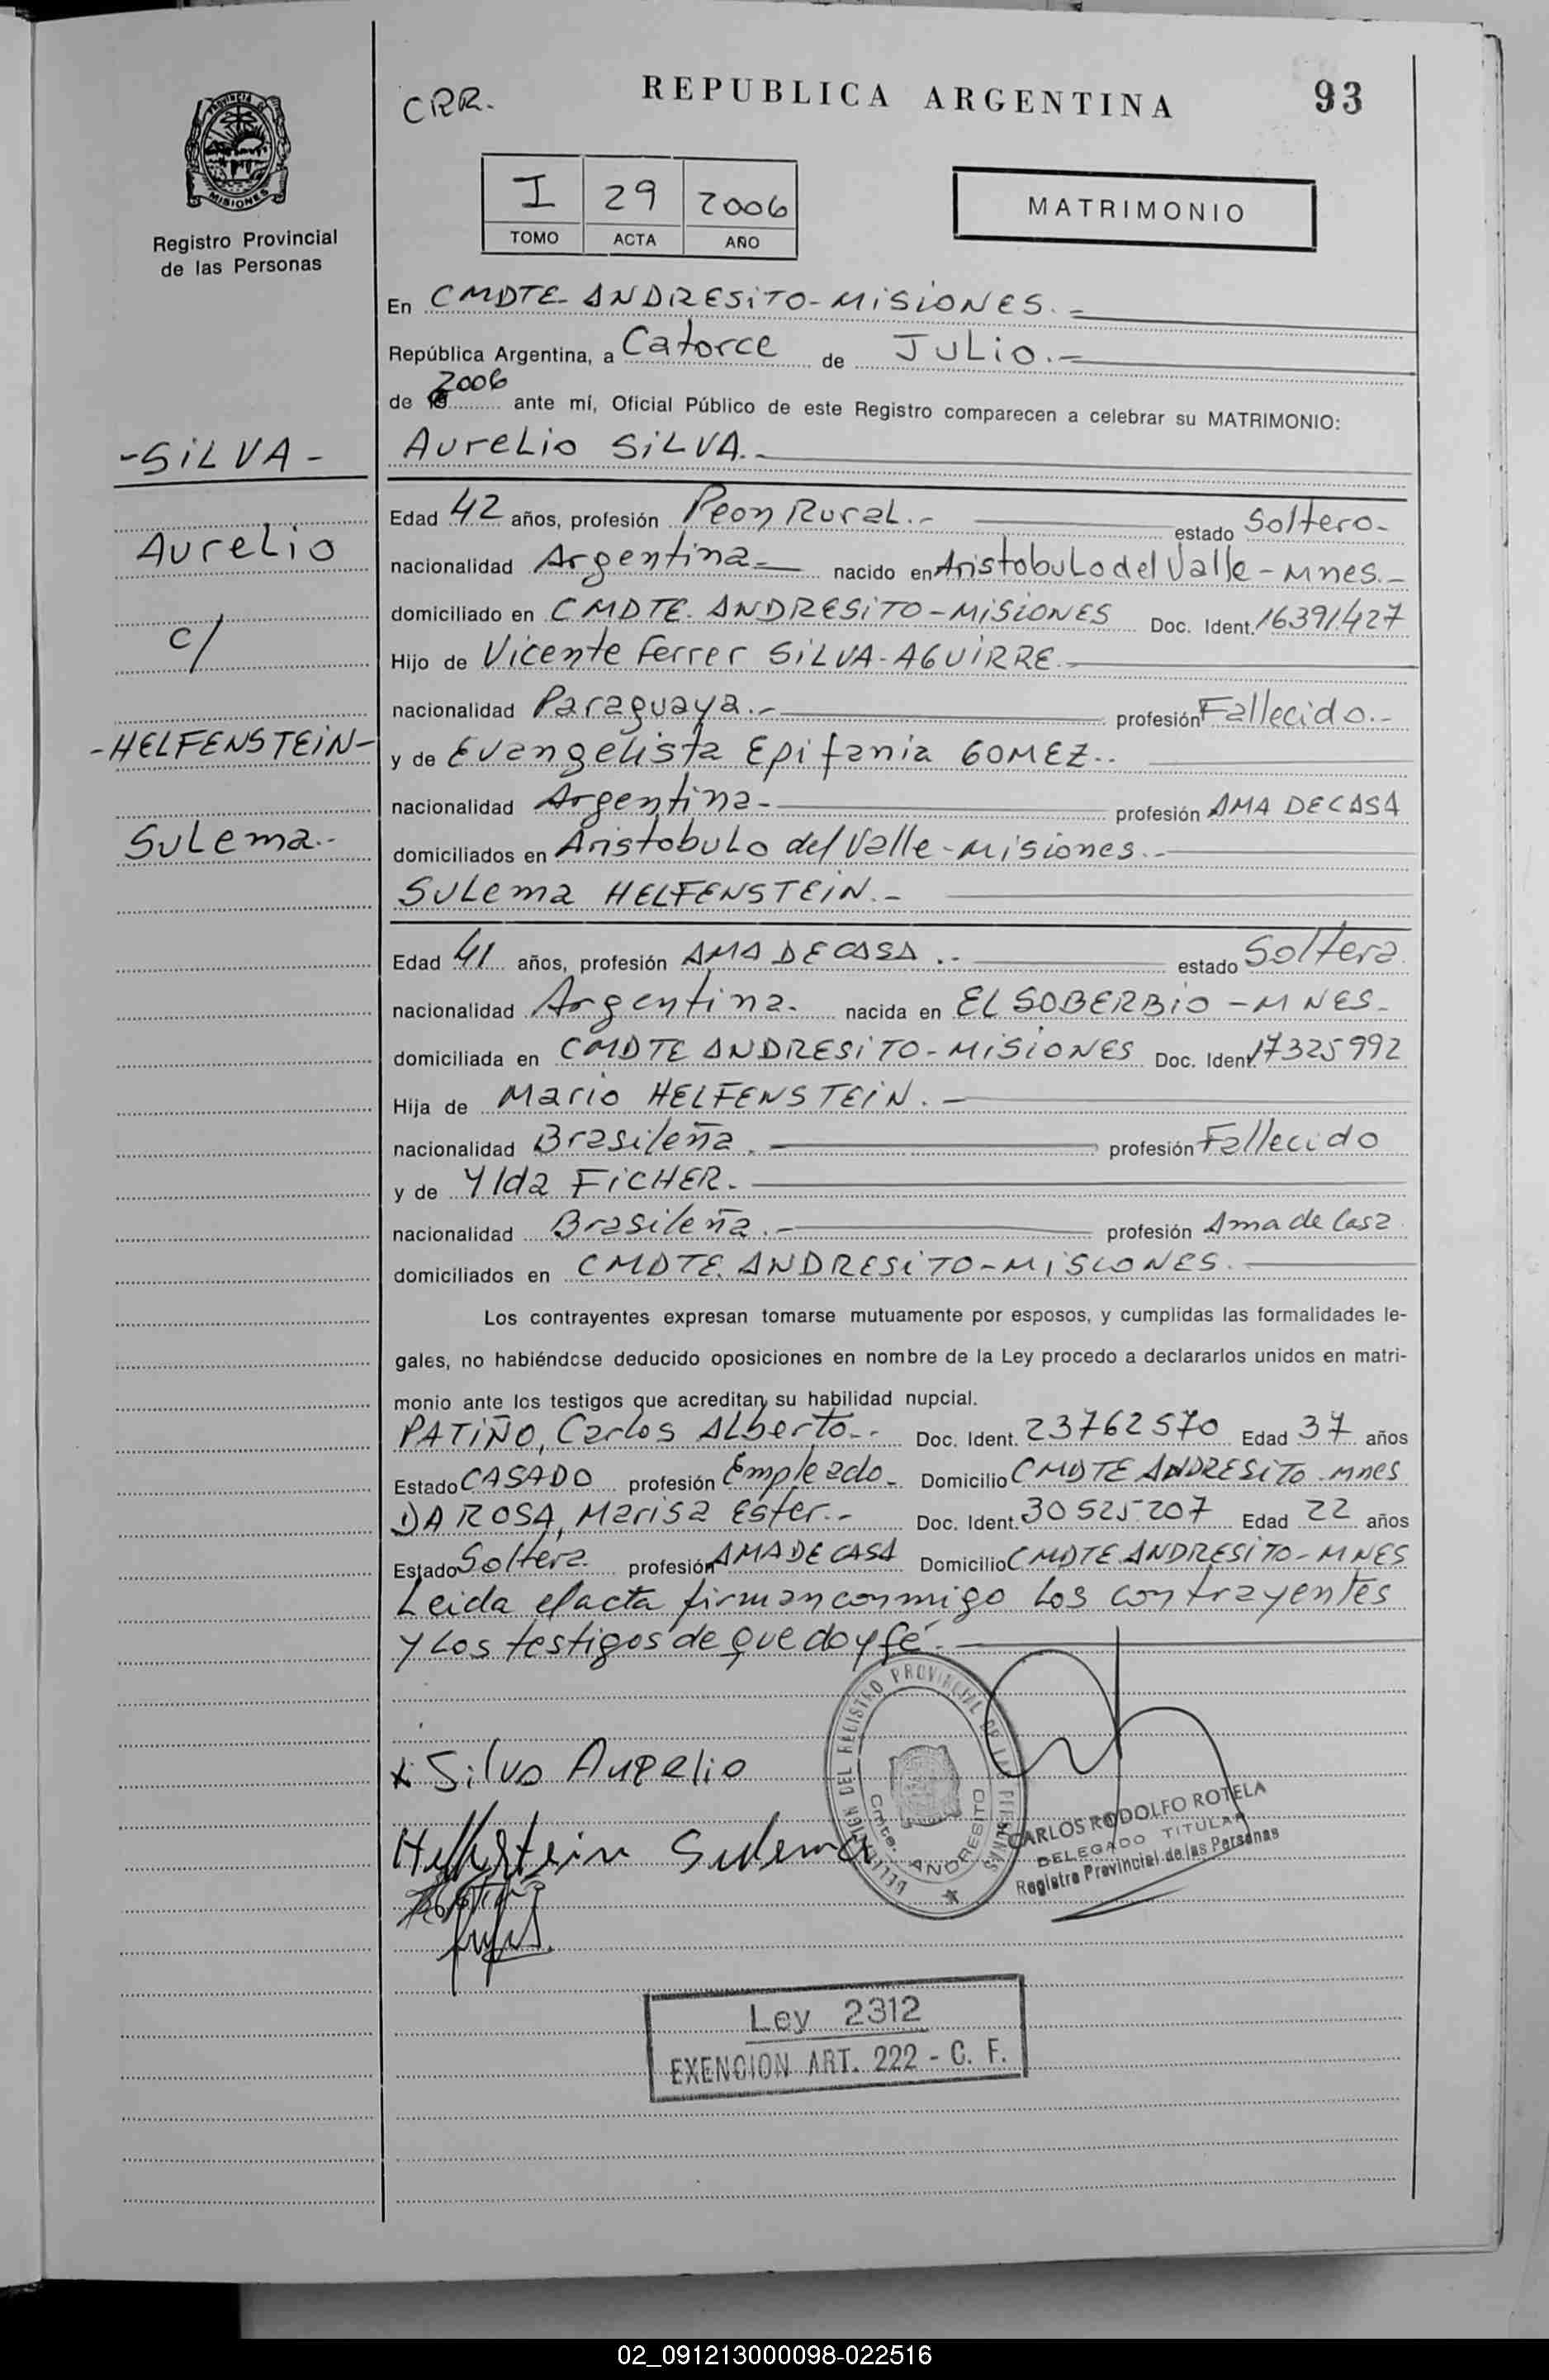 CRR.
REPUBLICA ARGENTINA
93
PROVINCIA DE
MISIONES
Registro Provincial
de las Personas
I 29 2006
TOMO ACTA AÑO
MATRIMONIO
En CMDTE ANDRESITO-MISIONES.-
República Argentina, a Catorce de JULIO.-
de 2006 ante mí, Oficial Público de este Registro comparecen a celebrar su MATRIMONIO:
-SILVA-
Aurelio
c/
-HELFENSTEIN-
SULema.-
Aurelio SILVA.-
Edad 42 años, profesión Peon Rural.- estado Soltero-
nacionalidad Argentina- nacido en Aristobulo del Valle-Mnes.-
domiciliado en CMDTE. ANDRESITO-MISIONES Doc. Ident. 16391427
Hijo de Vicente Ferrer SILVA-AGUIRRE.-
nacionalidad Paraguaya.- profesión Fallecido.-
y de Evangelista Epifania GOMEZ..
nacionalidad Argentina- profesión AMA DE CASA
domiciliados en Aristobulo del Valle-Misiones.-
SULema HELFENSTEIN.-
Edad 41 años, profesión AMA DE CASA.- estado Soltera
nacionalidad Argentina. nacida en EL SOBERBIO-MNES-
domiciliada en CMDTE ANDRESITO-MISIONES Doc. Ident. 17325992
Hija de Mario HELFENSTEIN.-
nacionalidad Brasileña. profesión Fallecido
y de Ylda FICHER.
nacionalidad Brasileña.- profesión Ama de Casa
domiciliados en CMDTE. ANDRESITO-MISIONES.
Los contrayentes expresan tomarse mutuamente por esposos, y cumplidas las formalidades le-
gales, no habiéndose deducido oposiciones en nombre de la Ley procedo a declararlos unidos en matri-
monio ante los testigos que acreditan su habilidad nupcial.
PATIÑO, Carlos Alberto.- Doc. Ident. 23762570 Edad 37 años
Estado CASADO profesión Empleado- Domicilio CMDTE ANDRESITO-Mnes
DA ROSA, Marisa Ester.- Doc. Ident. 30525207 Edad 22 años
Estado Soltera profesión AMA DE CASA Domicilio CMDTE ANDRESITO-MNES
Leida el acta firman conmigo los contrayentes
y los testigos de que doy fé.-
x Silva Aurelio
DELEGACION DEL REGISTRO PROVINCIAL DE LAS PERSONAS
Cmte. ANDRESITO
CARLOS RODOLFO ROTELA
DELEGADO TITULAR
Registro Provincial de las Personas
Helfstein Sulema
Ley 2312
EXENCION ART. 222 - C. F.
02_091213000098-022516